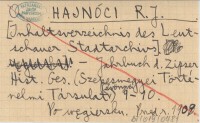 HAJNÓCI R.J.
[Inhaltsverzeichnis des Leut-
schauer Stadtarchivs]
Jahrbuch d. Zipser
Hist. Ges. (Szepesmegyei Törté-
nelmi Társulat) 9-10.
Po węgiersku. 1908.